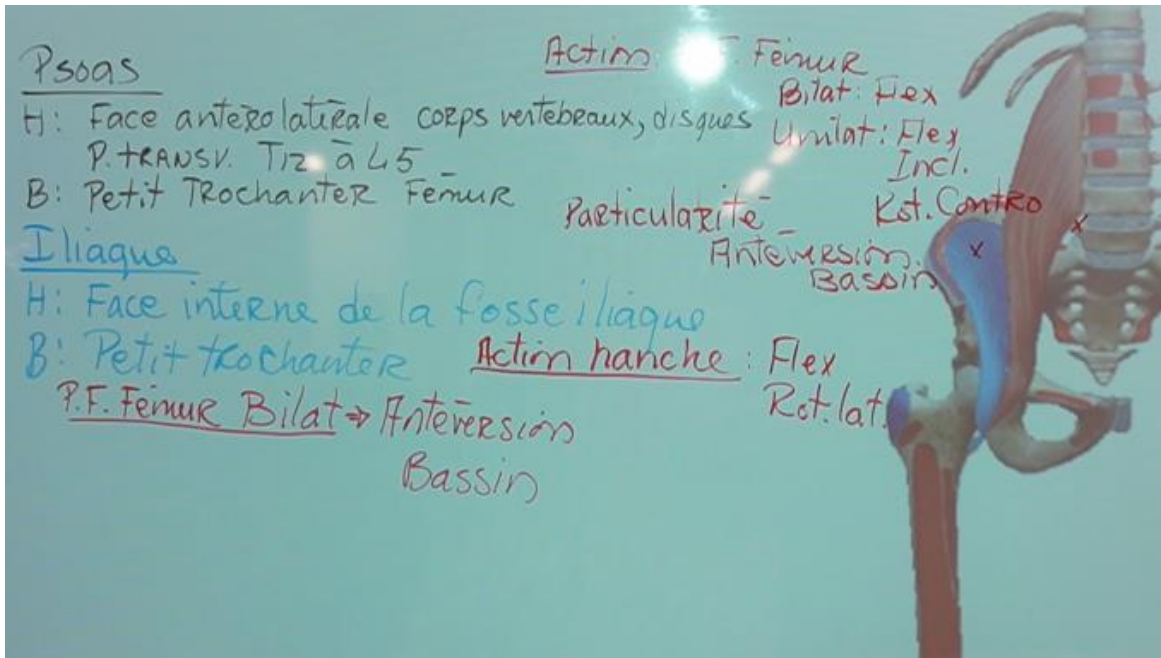 Psoas
H: Face antérolatérale corps vertebraux, disques
P. TRANSV. T12 à L5
B: Petit TROCHANTER FémUR
Iliaque
H: Face interne de la fosse iliaque
B: Petit trochanter
P.F. Fémur Bilat ⇒ Antéversion
Bassin
Action: F. FémUR
Bilat: Flex
Unilat: Flex
Incl.
Rot. Contro
Particularité
Antéversion
Bassin
Action hanche: Flex
Rot. lat.